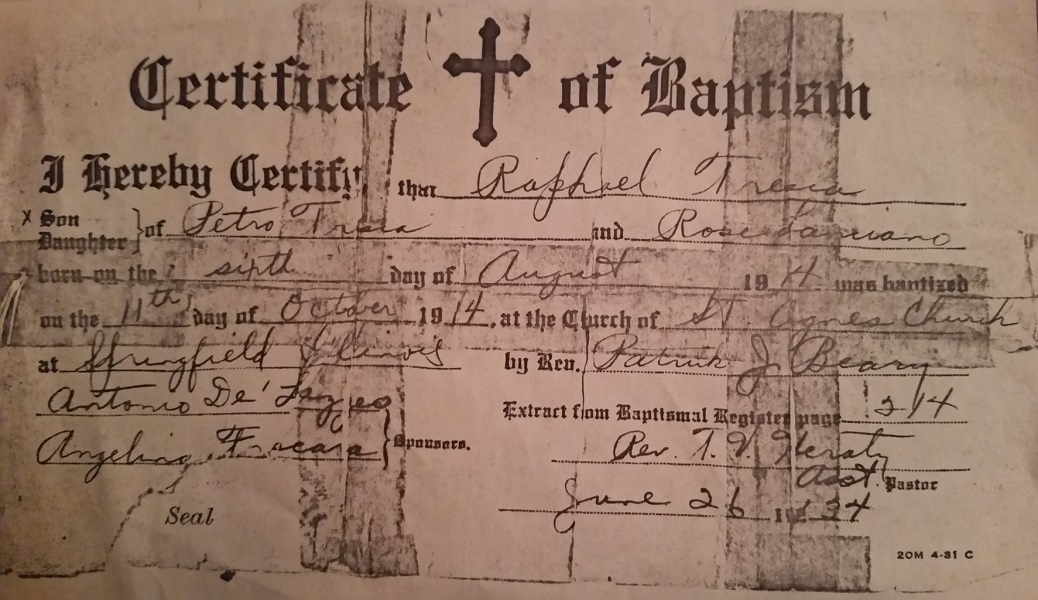 Certificate of Baptism
I Hereby Certify that Raphael Tresca
x Son
Daughter } of Petro Tresca and Rose
born on the sixth day of August 1914 was baptized
on the 11th day of October 1914, at the Church of St. Agnes Church
at Springfield Illinois by Rev. Patrick J. Beary
Antonio De'
Extract from Baptismal Register page 214
Angelina Sponsors.
Rev. T. Heraty
Asst. Pastor
June 26 1934
Seal
20M 4-31 C